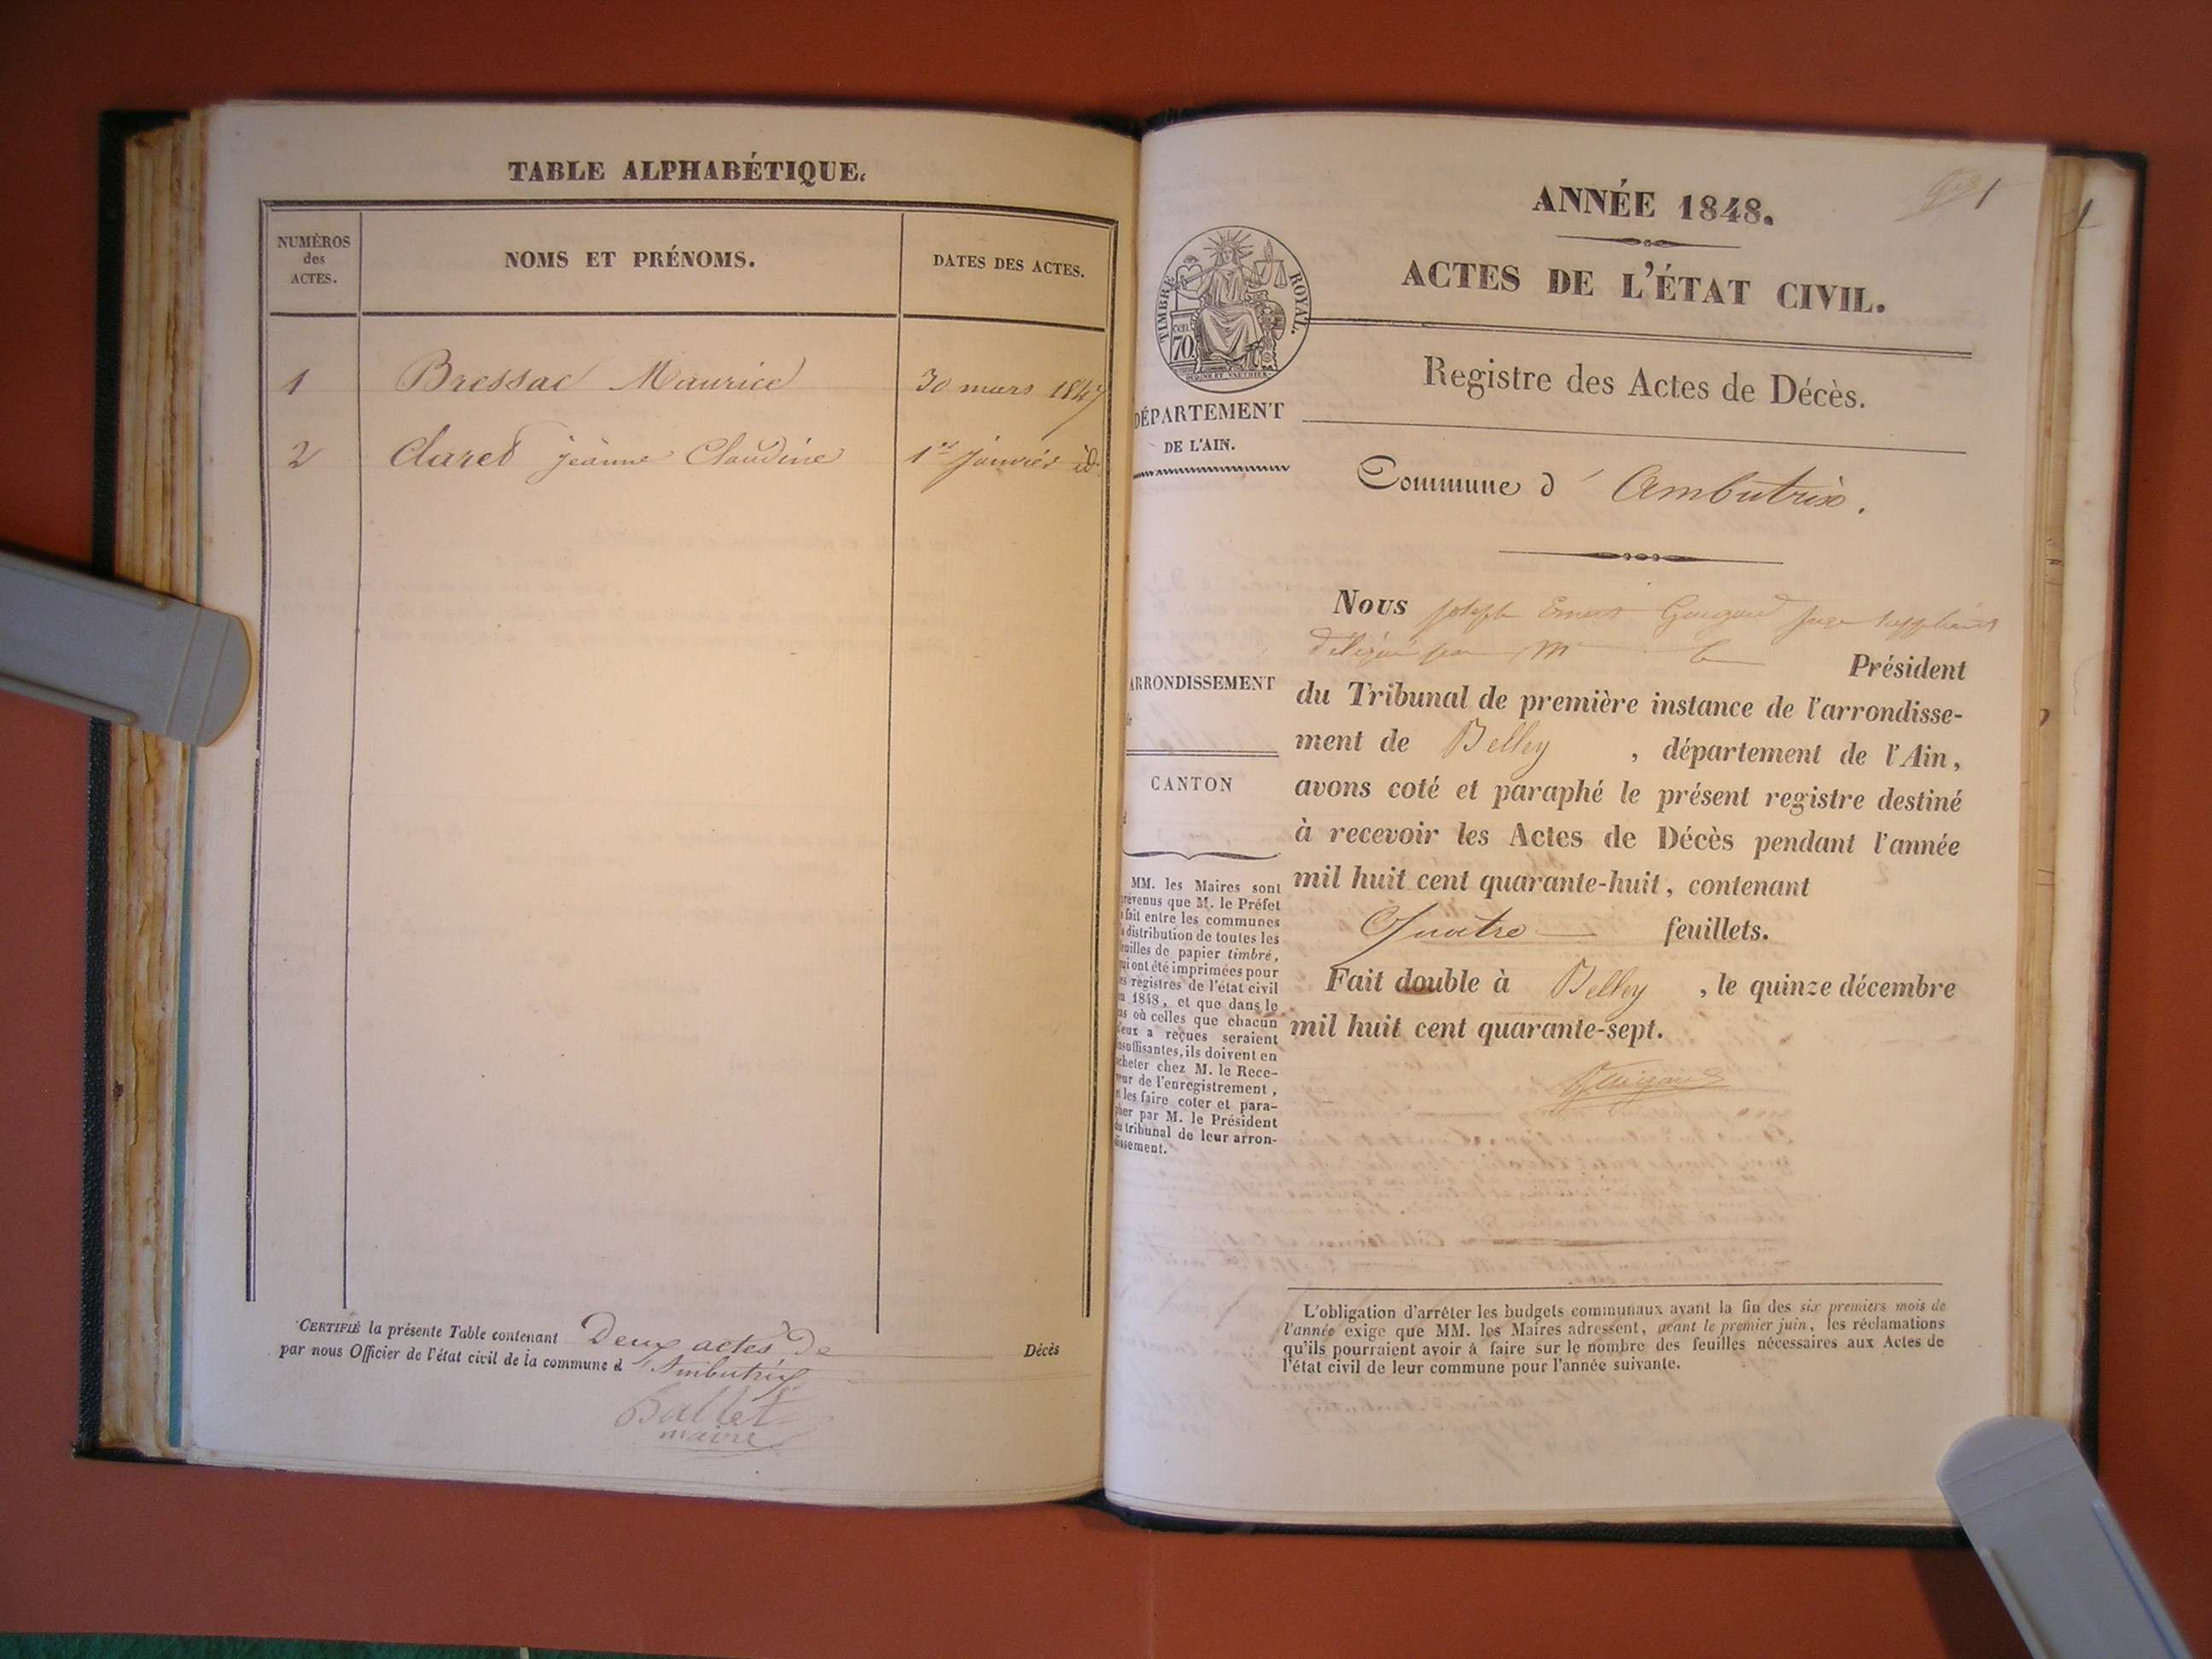 TABLE ALPHABÉTIQUE.
NUMÉROS
des
ACTES.
NOMS ET PRÉNOMS.
DATES DES ACTES.
1 Bressac Maurice 30 mars 1847
2 Claret jeanne Claudine 1er janvier id.
CERTIFIÉ la présente Table contenant Deux actes de Décès
par nous Officier de l'état civil de la commune d'Ambutrix
Ballet
maire
1
ANNÉE 1848.
ACTES DE L'ÉTAT CIVIL.
TIMBRE ROYAL.
cen.
70.
Registre des Actes de Décès.
DÉPARTEMENT
DE L'AIN.
Commune d'Ambutrix.
Nous joseph Ernest juge suppléant
délégué par Mr le Président
du Tribunal de première instance de l'arrondisse-
ment de Belley, département de l'Ain,
avons coté et paraphé le présent registre destiné
à recevoir les Actes de Décès pendant l'année
mil huit cent quarante-huit, contenant
Quatre feuillets.
Fait double à Belley, le quinze décembre
mil huit cent quarante-sept.
ARRONDISSEMENT
CANTON
MM. les Maires sont
prévenus que M. le Préfet
a fait entre les communes
la distribution de toutes les
feuilles de papier timbré,
qui ont été imprimées pour
les registres de l'état civil
en 1848, et que dans le
cas où celles que chacun
d'eux a reçues seraient
insuffisantes, ils doivent en
acheter chez M. le Rece-
veur de l'enregistrement,
et les faire coter et para-
pher par M. le Président
du tribunal de leur arron-
dissement.
L'obligation d'arrêter les budgets communaux avant la fin des six premiers mois de
l'année exige que MM. les Maires adressent, avant le premier juin, les réclamations
qu'ils pourraient avoir à faire sur le nombre des feuilles nécessaires aux Actes de
l'état civil de leur commune pour l'année suivante.